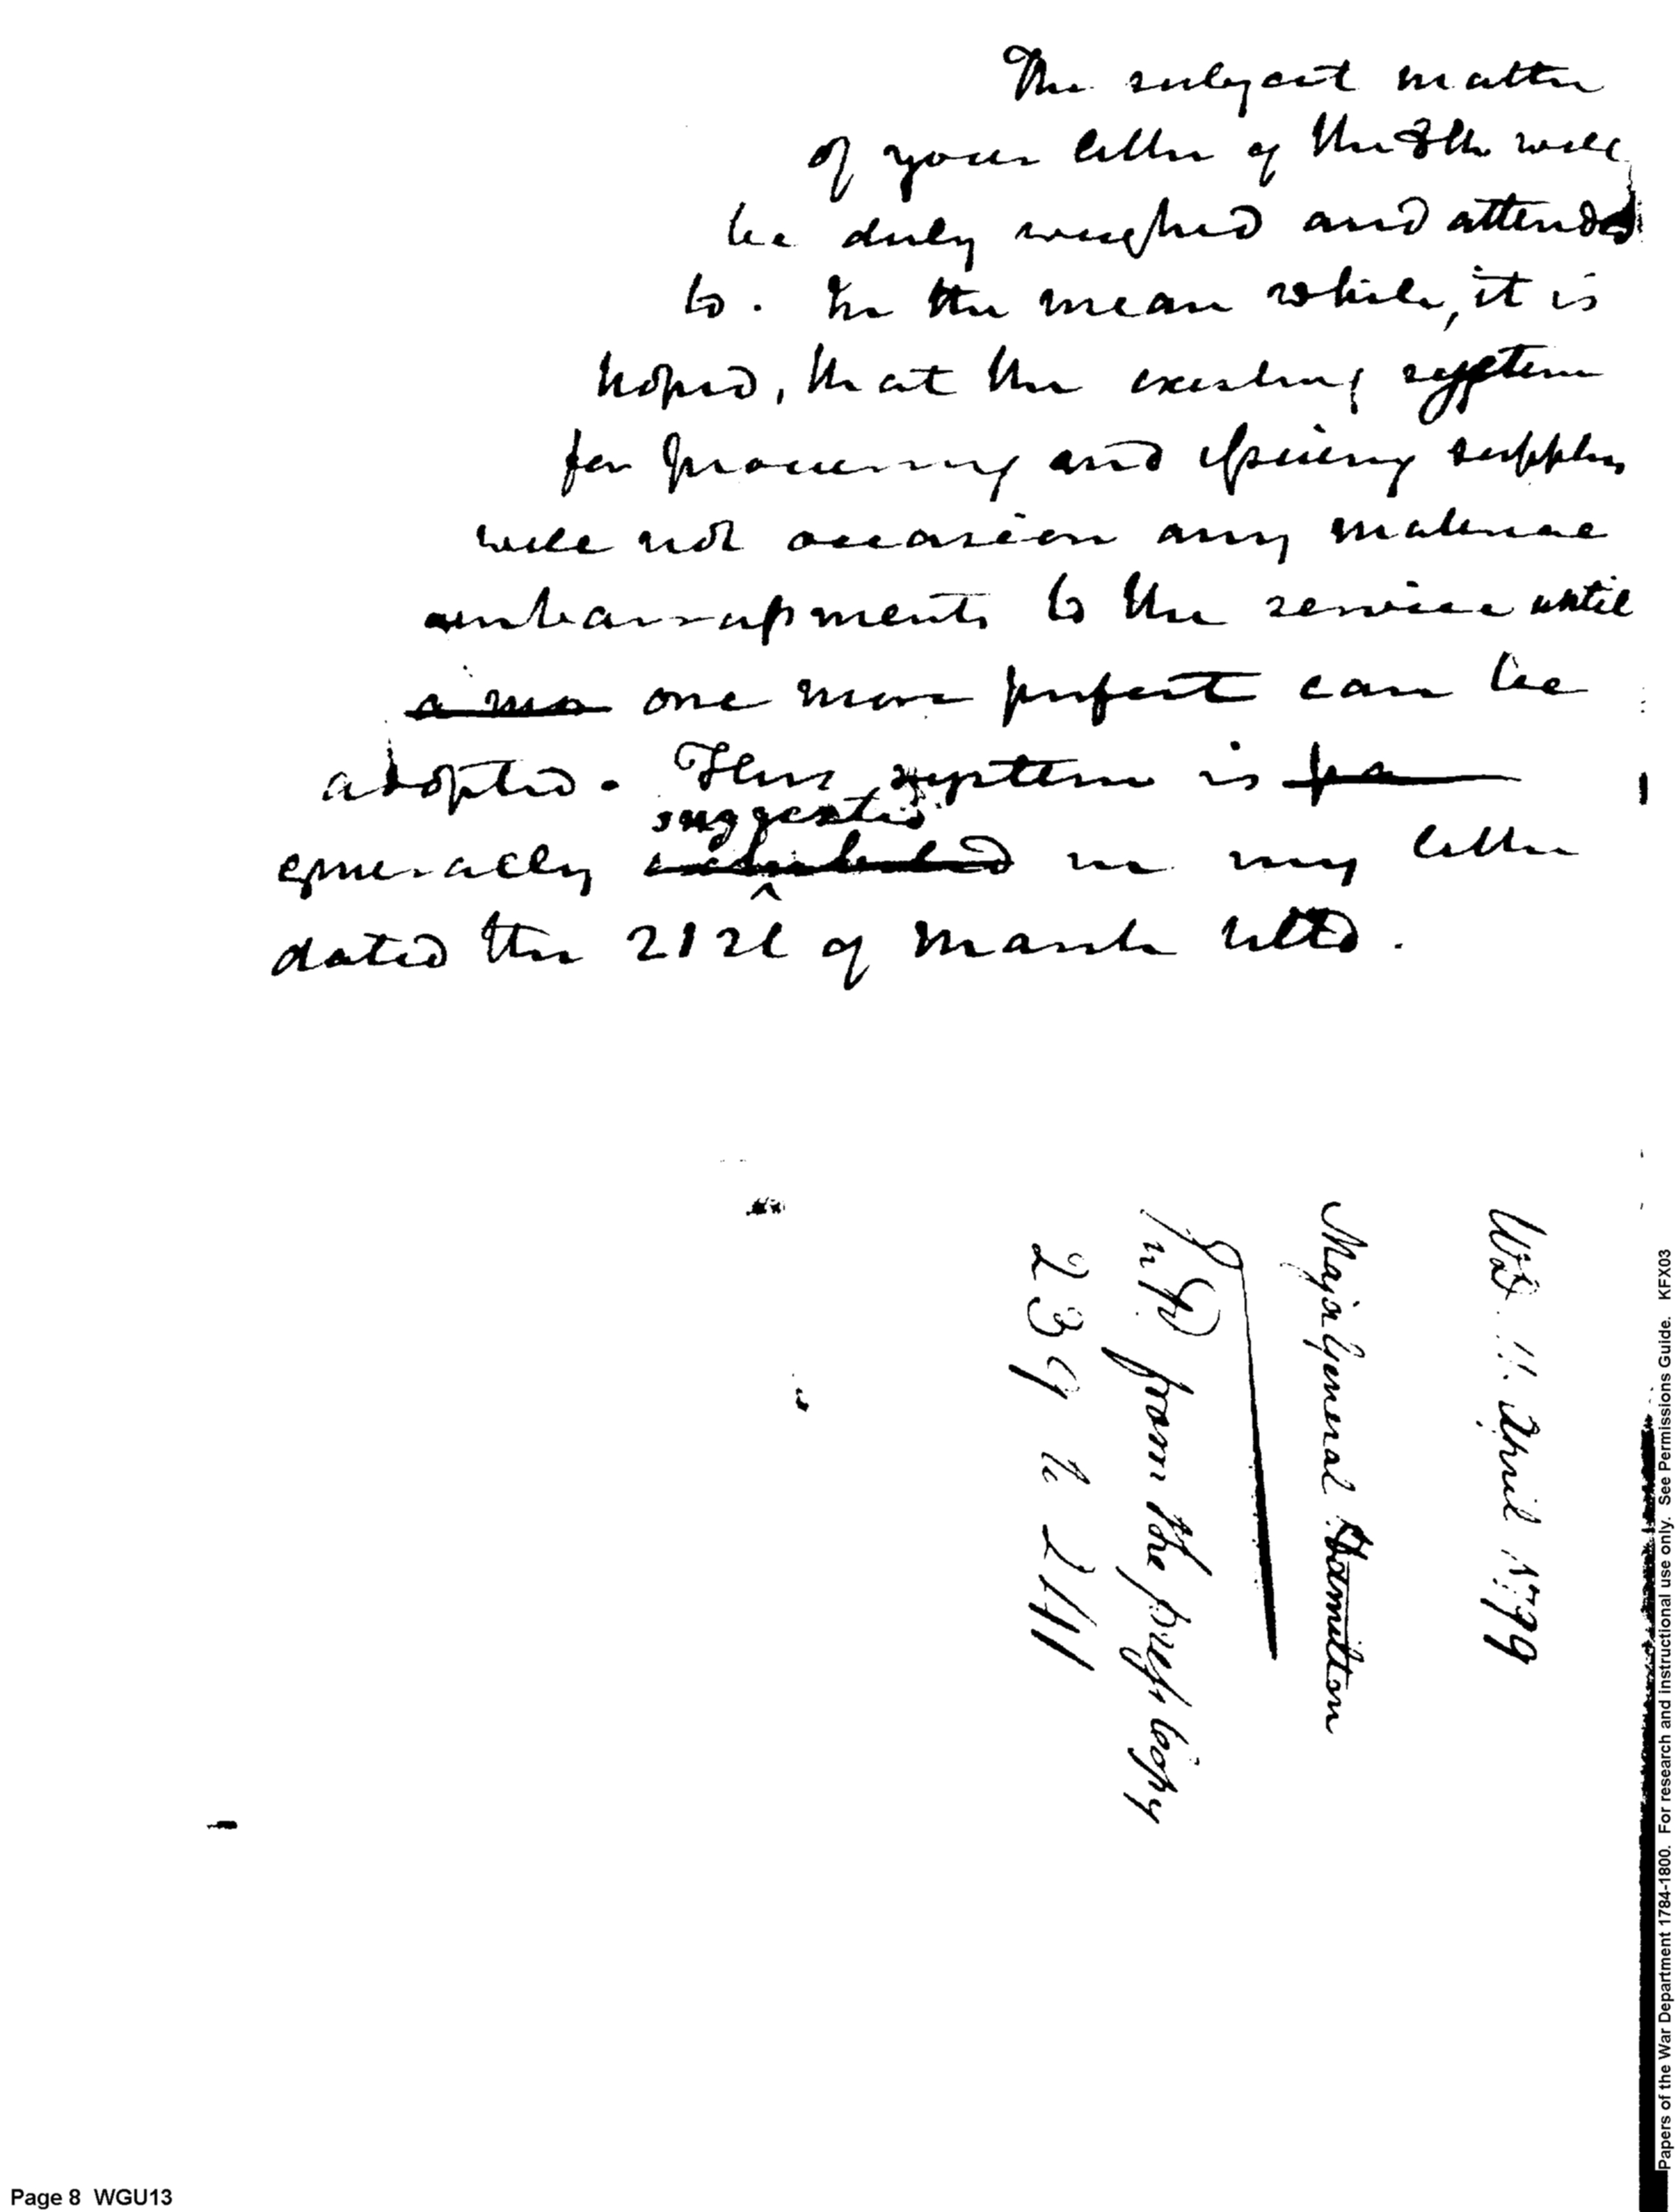 The subject matter
of your letter of the 8th will
be duly weighed and attended
to. In the mean while, it is
hoped, that the existing system
for procuring and issuing supplies
will not occasion any material
embarrassments to the service until
a mo one more perfect can be
adopted. This system is pa
suggested
generally in my letter
dated the 21st of March ulto.
War 11. April 1799
Major General Hamilton
from the press copy
239 to 241
Papers of the War Department 1784-1800. For research and instructional use only. See Permissions Guide. KFX03
Page 8 WGU13